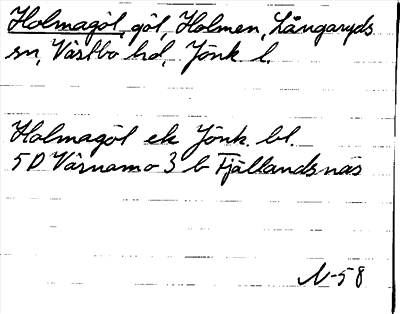 Holmagöl, göl, Holmen, Långaryds
sn, Västbo hd, Jönk l.
Holmagöl ek Jönk. bl.
5D Värnamo 3 b Fjällandsnäs
N-58